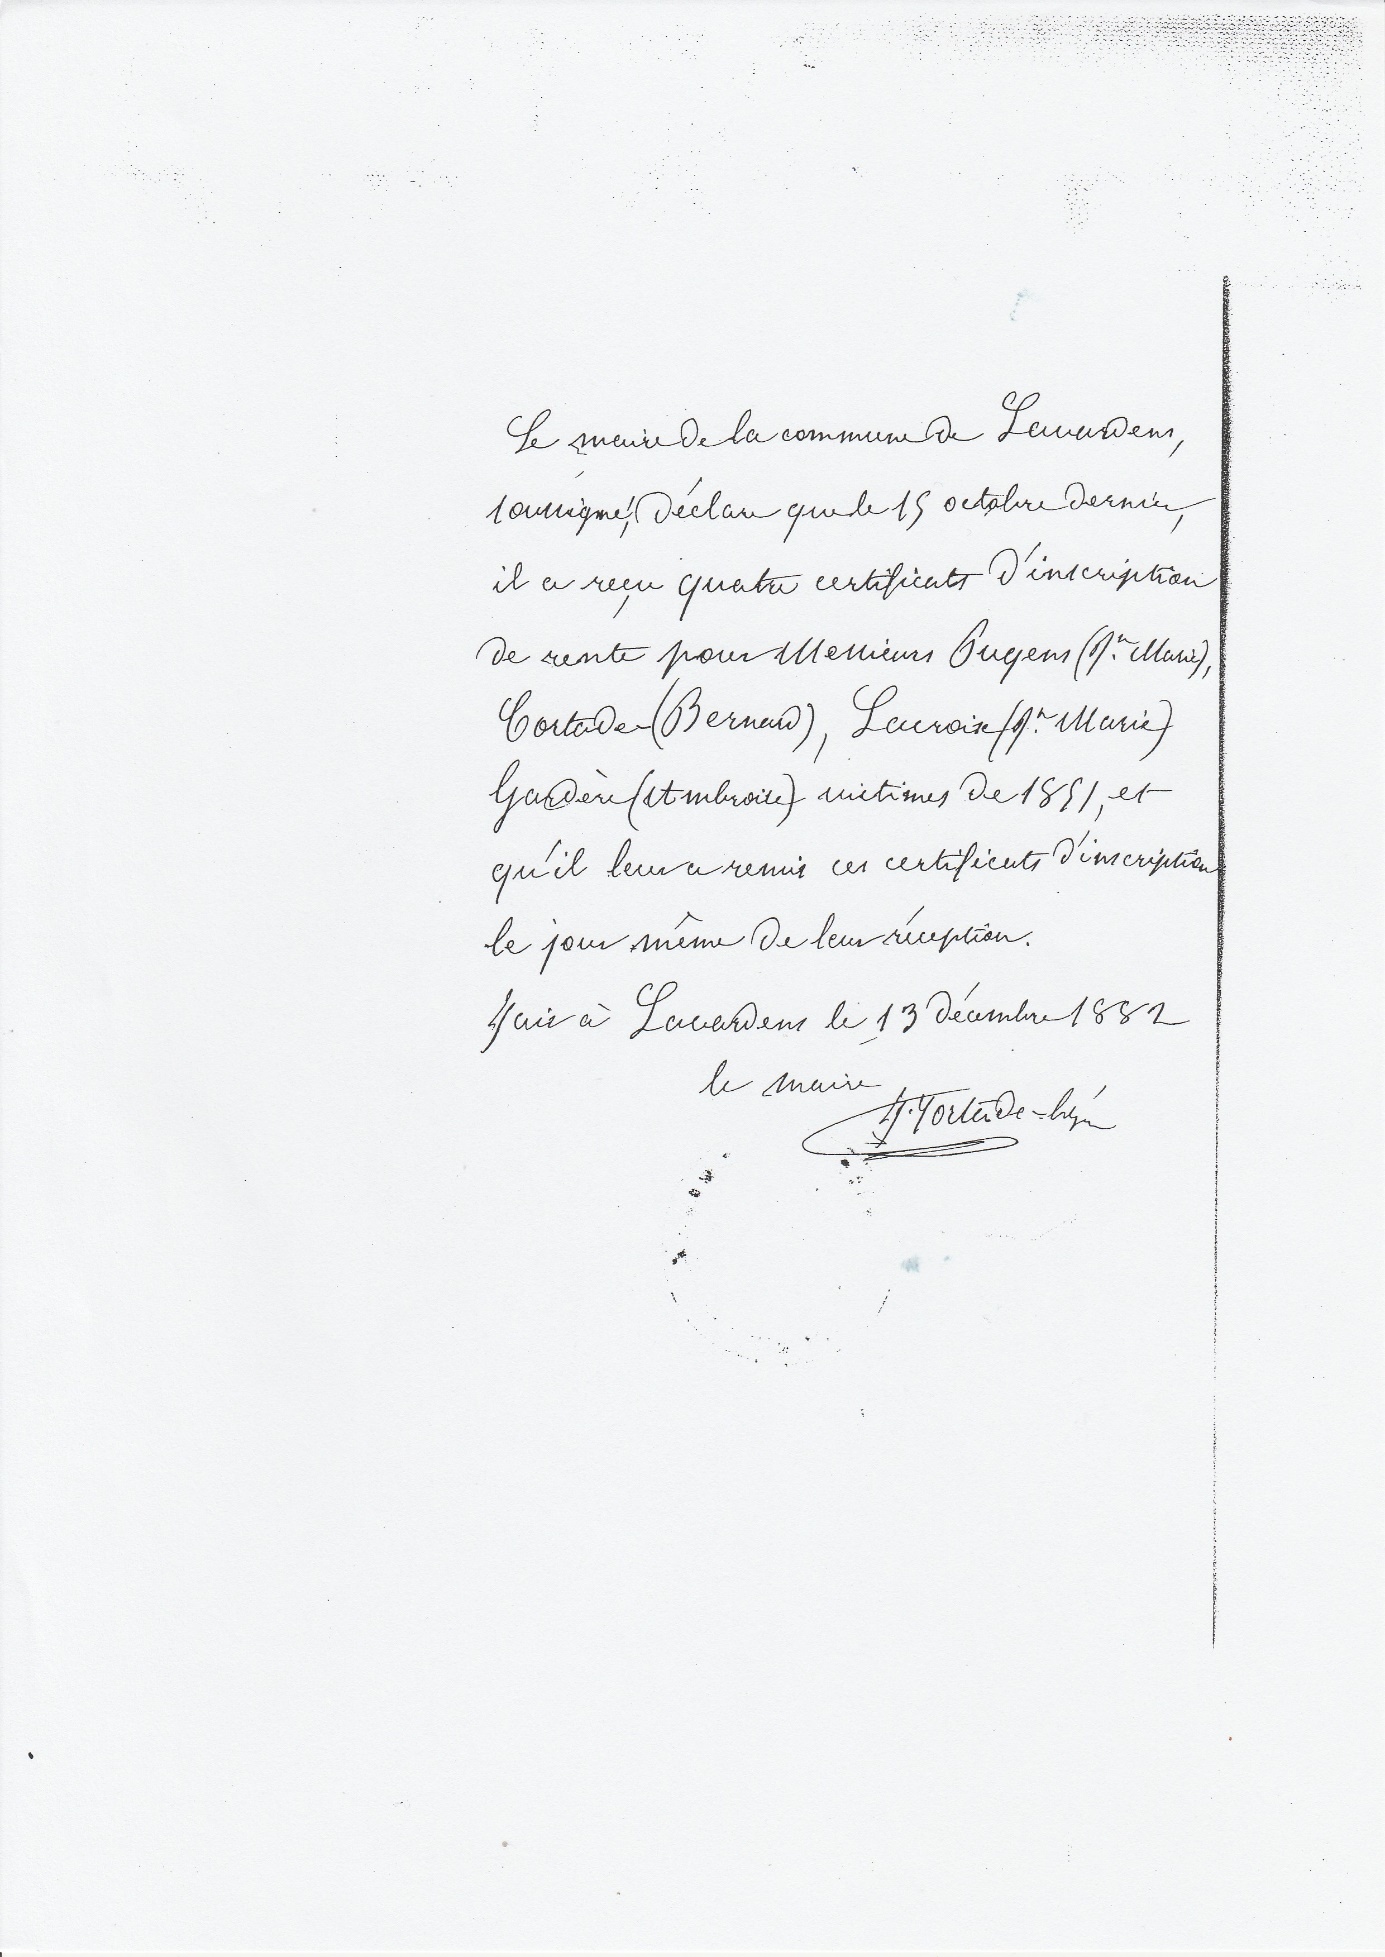 Le maire de la commune de Lavardens,
soussigné, déclare que le 15 octobre dernier,
il a reçu quatre certificats d'inscription
de rente pour Messieurs Pugens (Jn. Marie),
Cortade (Bernard), Lacroix (Jn. Marie)
Gardère (Ambroise) victimes de 1851, et
qu'il leur a remis ces certificats d'inscription
le jour même de leur réception.
Fait à Lavardens le 13 décembre 1882
le maire